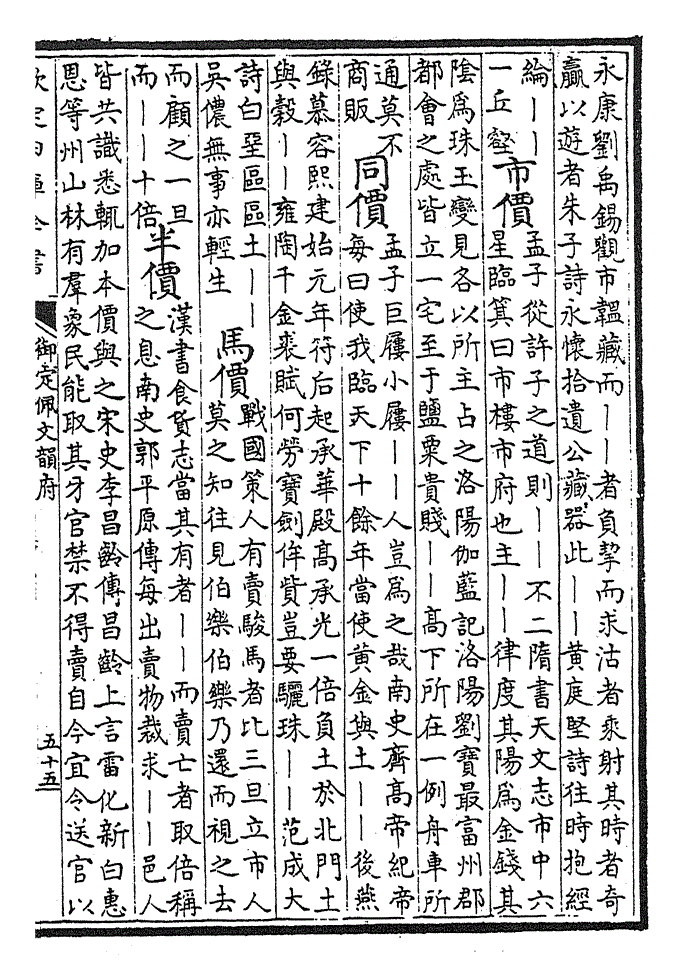 永康劉禹錫觀市韞藏而——者負挈而求沽者乘射其時者奇
贏以遊者朱子詩永懷拾遺公藏器此——黃庭堅詩往時抱經
綸——
一丘壑
市價
孟子從許子之道則——不二隋書天文志市中六
星臨箕曰市樓市府也主——律度其陽爲金錢其
陰爲珠玉變見各以所主占之洛陽伽藍記洛陽劉寶最富州郡
都會之處皆立一宅至于鹽粟貴賤——高下所在一例舟車所
通莫不
商販
同價
孟子巨屨小屨——人豈爲之哉南史齊高帝紀帝
每曰使我臨天下十餘年當使黃金與土——後燕
錄慕容熙建始元年符后起承華殿高承光一倍負土於北門土
與穀——雍陶千金裘賦何勞寶劍侔貲豈要驪珠——范成大
詩白堊區區土——
吳儂無事亦輕生
馬價
戰國策人有賣駿馬者比三旦立市人
莫之知往見伯樂伯樂乃還而視之去
而顧之一旦
而——十倍
半價
漢書食貨志當其有者——而賣亡者取倍稱
之息南史郭平原傳每出賣物裁求——邑人
皆共識悉輒加本價與之宋史李昌齡傳昌齡上言雷化新白惠
恩等州山林有羣象民能取其牙官禁不得賣自今宜令送官以
欽定四庫全書
御定佩文韻府
五十五